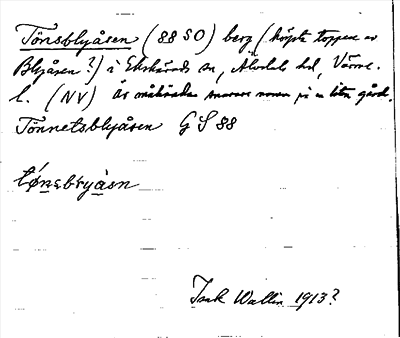 Tönsblyåsen (88 SO) berg (högsta toppen av
Blyåsen?) i Ekshärads sn, Älvdals hd, Värml.
l. (NV) är snarare namn på en liten gård.
Tönnetsblyåsen GS 88
tǿnsbryàsn
Isak Wallin 1913?